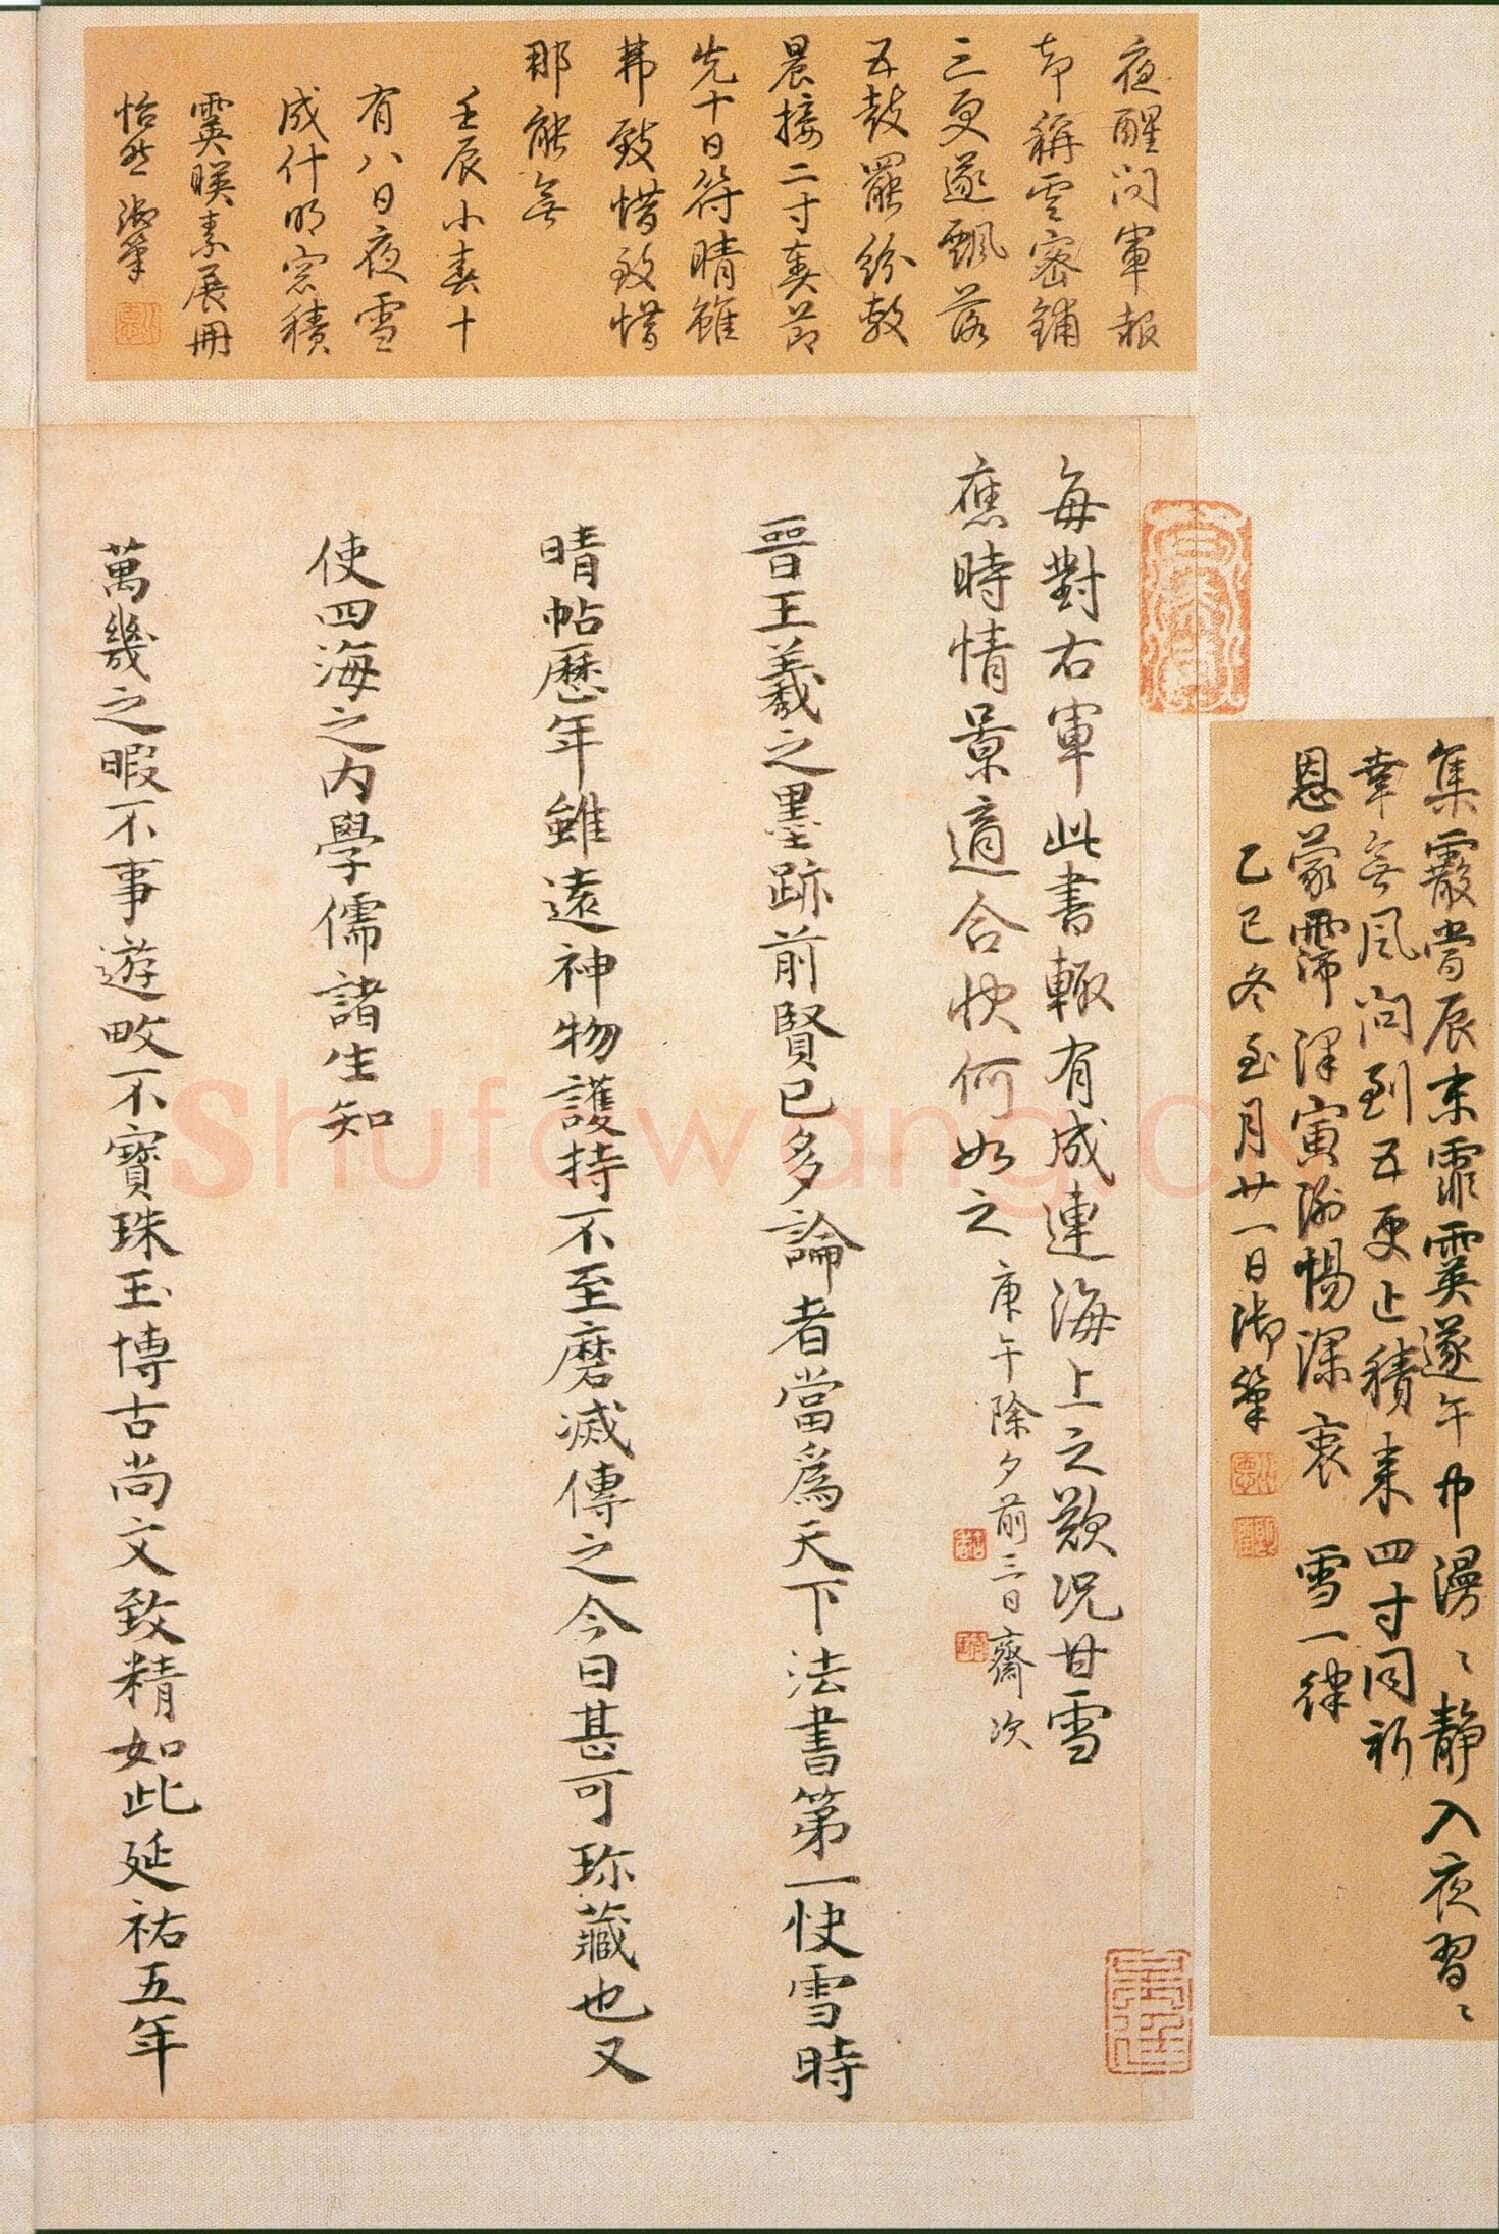 夜醒问軍報
却稱雲密鋪
三更遂飄落
五鼓罷紛敷
晨接二寸奏
先十日符晴雖
弗致惜致惜
那能無
壬辰小春十
有八日夜雪
成什明窓積
霙暎素展冊
怡然御筆
集霰嘗辰末霏霙遂午中漫〻静入夜習〻
幸無风问到五更止積来四寸同祈
恩蒙霈澤寅謝惕深衷 雪一律
乙巳冬至月廿一日御筆
每對右軍此書輙有成連海上之歎况甘雪
應時情景適合快何如之庚午除夕前三日齋次
晉王羲之墨跡前賢已多論者當為天下法書第一快雪時
晴帖歷年雖遠神物護持不至磨滅傳之今日甚可珎藏也又
使四海之内學儒諸生知
萬幾之暇不事遊畋不寶珠玉博古尚文致精如此延祐五年
Shufawang.cn